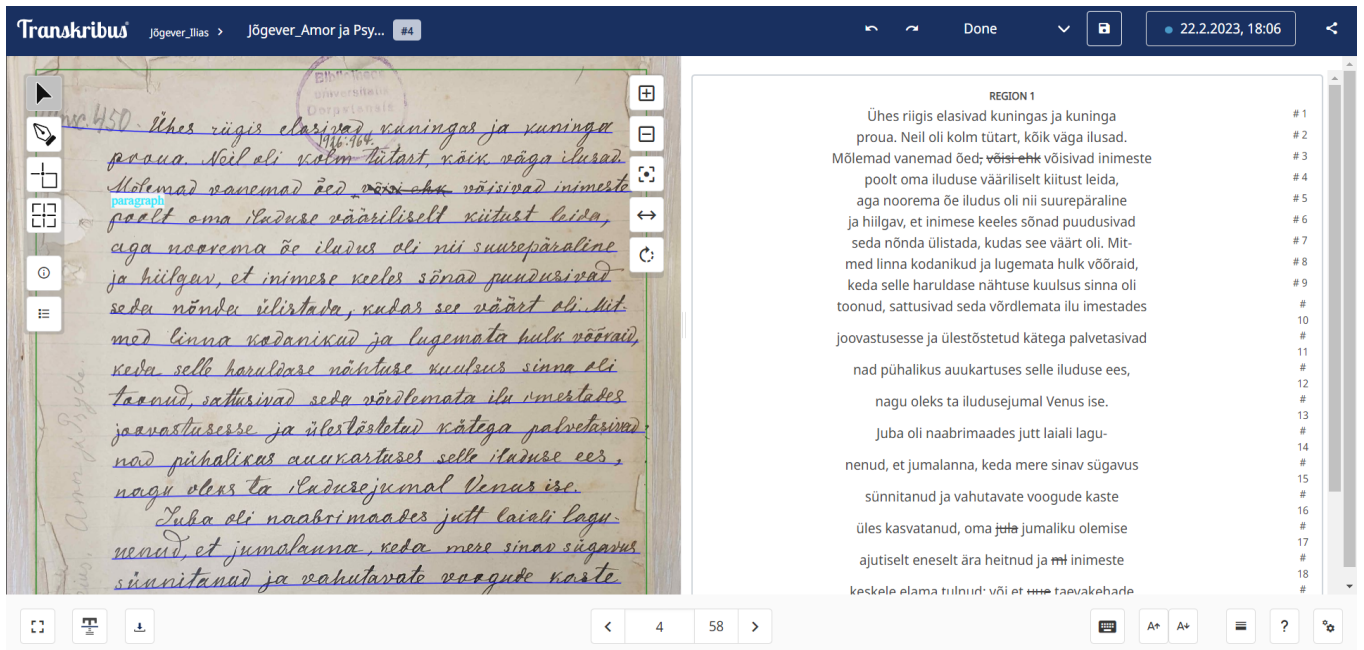 Transkribus
Jõgever_Ilias > Jõgever_Amor ja Psy... #4
Done
22.2.2023, 18:06
universitatis
450.
Ühes riigis elasivad kuningas ja kuninga
1926:964.
proua. Neil oli kolm tütart, kõik väga ilusad.
Mõlemad vanemad õed, võisi ehk võisivad inimeste
paragraph
poolt oma iluduse vääriliselt kiitust leida,
aga noorema õe iludus oli nii suurepäraline
ja hiilgav, et inimese keeles sõnad puudusivad
seda nõnda ülistada, kudas see väärt oli. Mit-
med linna kodanikud ja lugemata hulk võõraid,
keda selle haruldase nähtuse kuulsus sinna oli
toonud, sattusivad seda võrdlemata ilu imestades
joovastusesse ja ülestõstetud kätega palvetasivad
nad pühalikus auukartuses selle iluduse ees,
nagu oleks ta iludusejumal Venus ise.
Juba oli naabrimaades jutt laiali lagu-
nenud, et jumalanna, keda mere sinav sügavus
sünnitanud ja vahutavate voogude kaste
Amor ja Psyche
REGION 1
Ühes riigis elasivad kuningas ja kuninga #1
proua. Neil oli kolm tütart, kõik väga ilusad. #2
Mõlemad vanemad õed; võisi ehk võisivad inimeste #3
poolt oma iluduse vääriliselt kiitust leida, #4
aga noorema õe iludus oli nii suurepäraline #5
ja hiilgav, et inimese keeles sõnad puudusivad #6
seda nõnda ülistada, kudas see väärt oli. Mit- #7
med linna kodanikud ja lugemata hulk võõraid, #8
keda selle haruldase nähtuse kuulsus sinna oli #9
toonud, sattusivad seda võrdlemata ilu imestades #
10
joovastusesse ja ülestõstetud kätega palvetasivad #
11
nad pühalikus auukartuses selle iluduse ees, #
12
nagu oleks ta iludusejumal Venus ise. #
13
Juba oli naabrimaades jutt laiali lagu- #
14
nenud, et jumalanna, keda mere sinav sügavus #
15
sünnitanud ja vahutavate voogude kaste #
16
üles kasvatanud, oma jula jumaliku olemise #
17
ajutiselt eneselt ära heitnud ja ml inimeste #
18
keskele elama tulnud; või et uue taevakehade #
4 58
A A ?